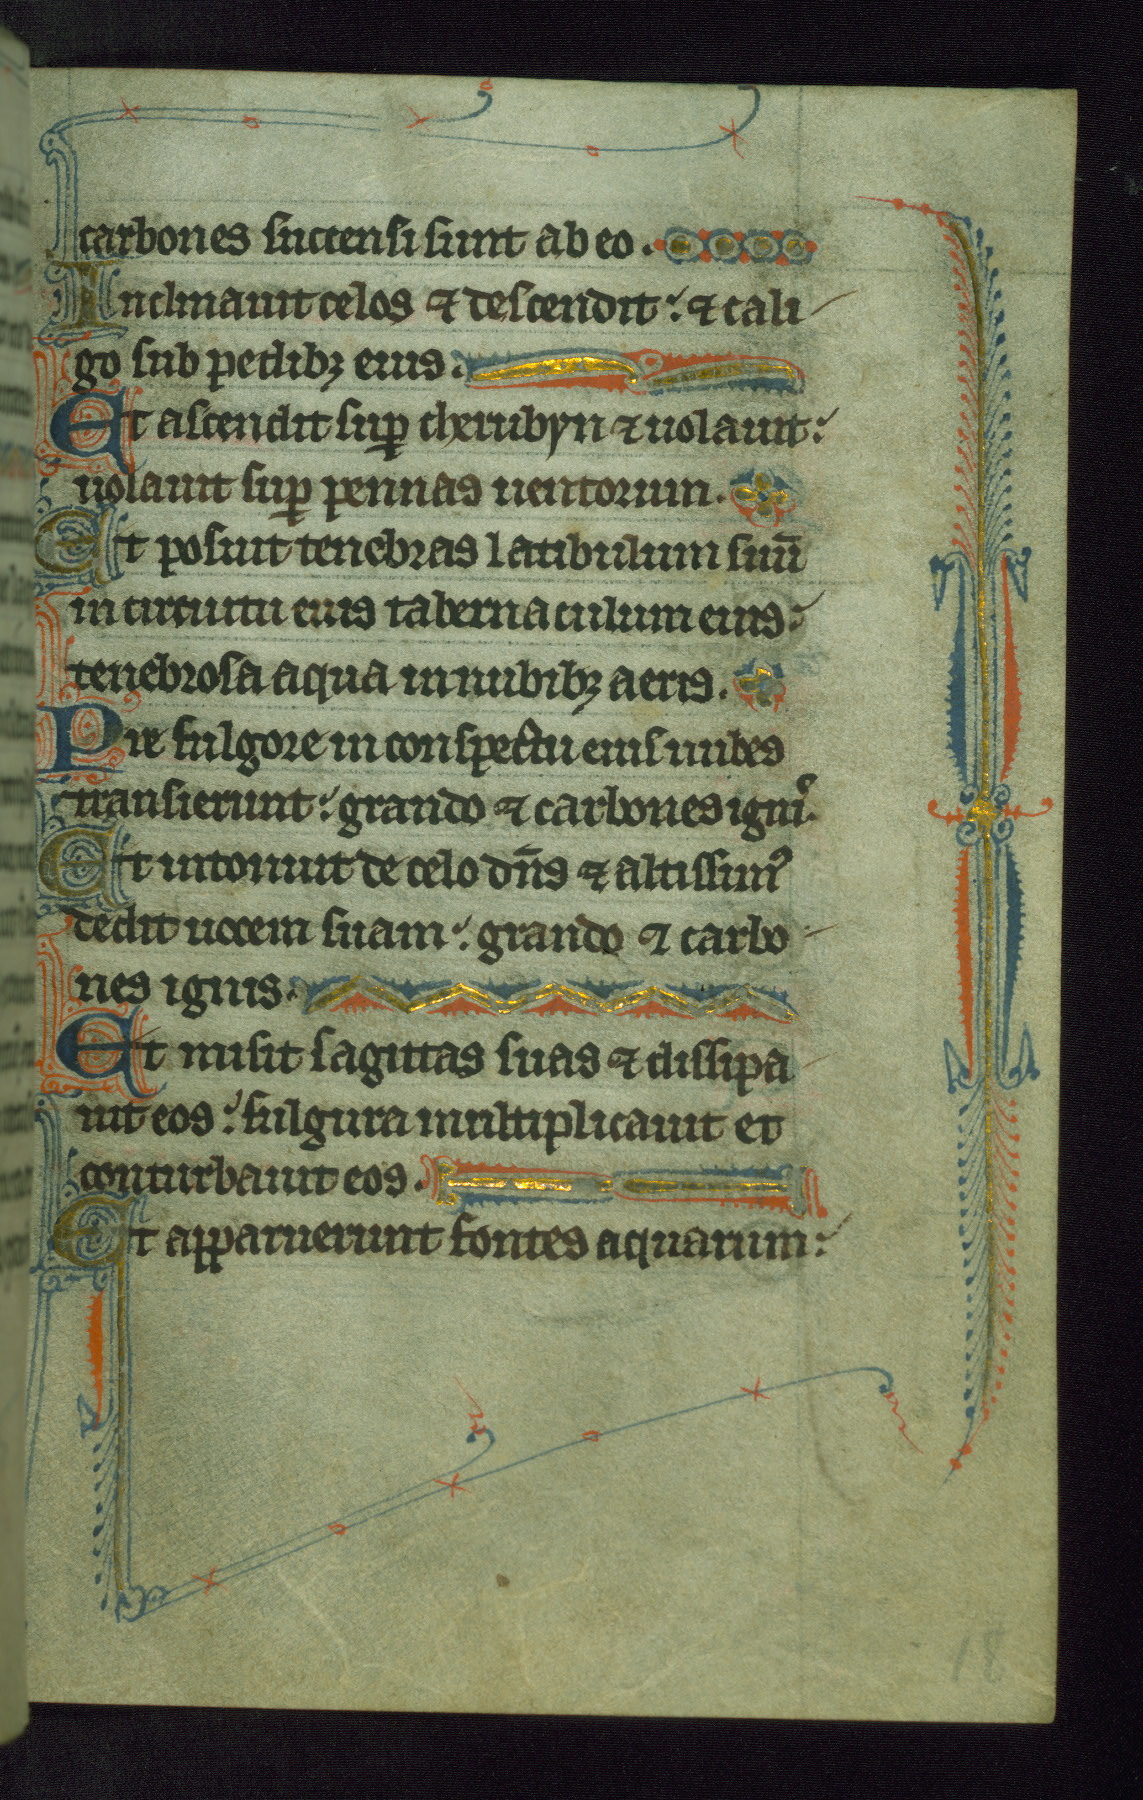 carbones succensi sunt ab eo.
Inclinauit celos ⁊ descendit: ⁊ cali
go sub pedibꝫ eius.
Et ascendit suꝑ cherubyn ⁊ uolauit:
uolauit suꝑ pennas uentorum.
Et posuit tenebras latibulum suū
in circuitu euis tabernaculum eius:
tenebrosa aqua in nubibꝫ aeris.
Pre fulgore in conspectu eius nubes
transierunt: grando ⁊ carbones igniꝰ.
Et intonuit de celo dn̄s ⁊ altissimꝰ
dedit uocem suam: grando ⁊ carbo
nes ignis.
Et misit sagittas suas ⁊ dissipa
uit eos: fulgura multiplicauit et
conturbauit eos.
Et apparuerunt fontes aquarum: